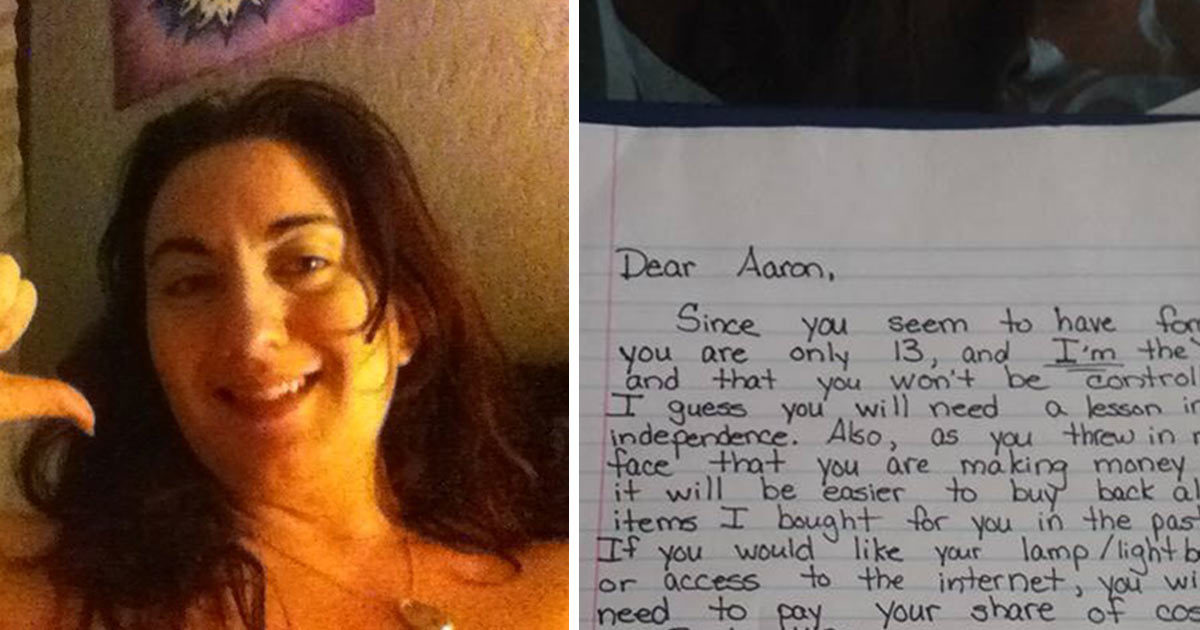 Dear Aaron,
Since you seem to have
you are only 13, and I'm the
and that you won't be
I guess you will need a lesson in
independence. Also, as you threw in
face that you are making money
it will be easier to buy back
items I bought for you in the past
If you would like your lamp/
or access to the internet, you
need to pay your share of